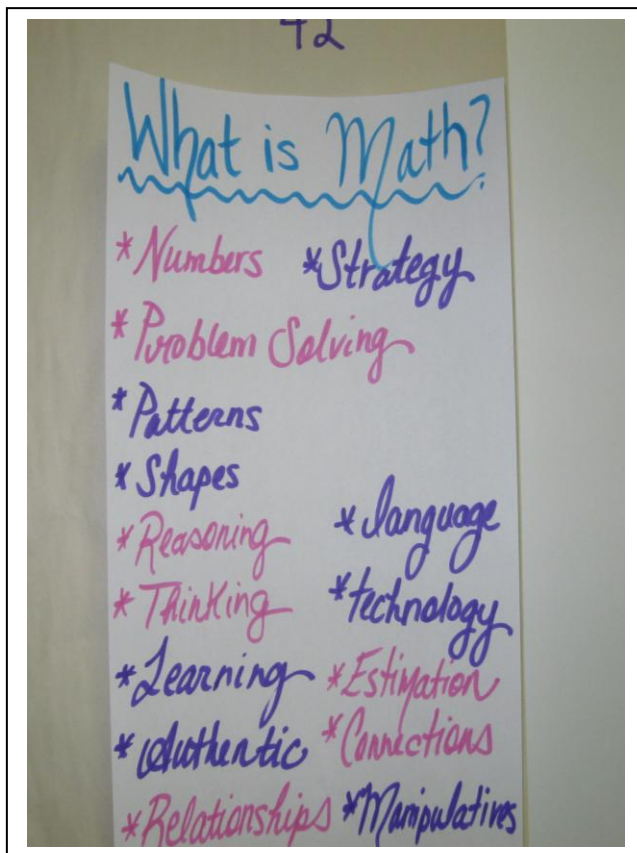 42
What is Math?
*Numbers *Strategy
*Problem Solving
*Patterns
*Shapes
*Reasoning *language
*Thinking *technology
*Learning *Estimation
*Authentic *Connections
*Relationships *Manipulatives